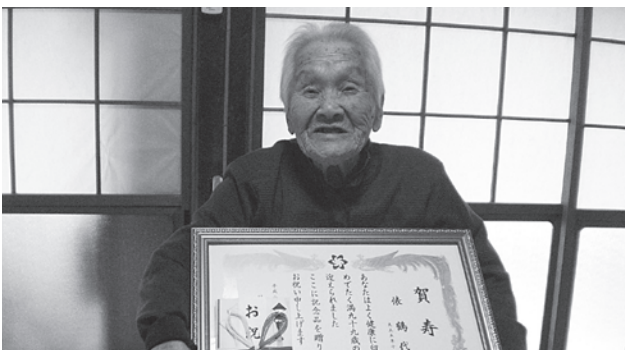 賀寿
俵 鶴代
あなたはよく健康に
めでたく満九十九歳の
迎えられました
ここに記念品を贈り
お祝い申し上げます
平成
お祝